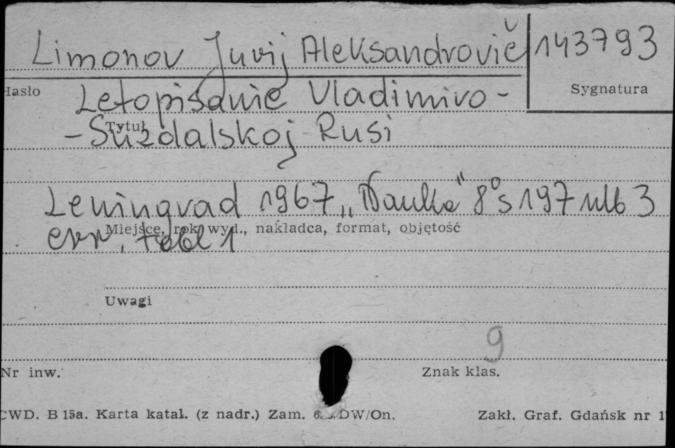 Limonov Jurij Aleksandrovič 143793
Hasło Sygnatura
Letopisanie Vladimiro-
Tytuł
-Suzdalskoj Rusi
Leningrad 1967 „Nauka" 8° s 197 nlb 3
Miejsce, rok wyd., nakładca, format, objętość
err, tabl 1
Uwagi
9
Nr inw. Znak klas.
CWD. B 15a. Karta katal. (z nadr.) Zam. DW/On. Zakł. Graf. Gdańsk nr 1